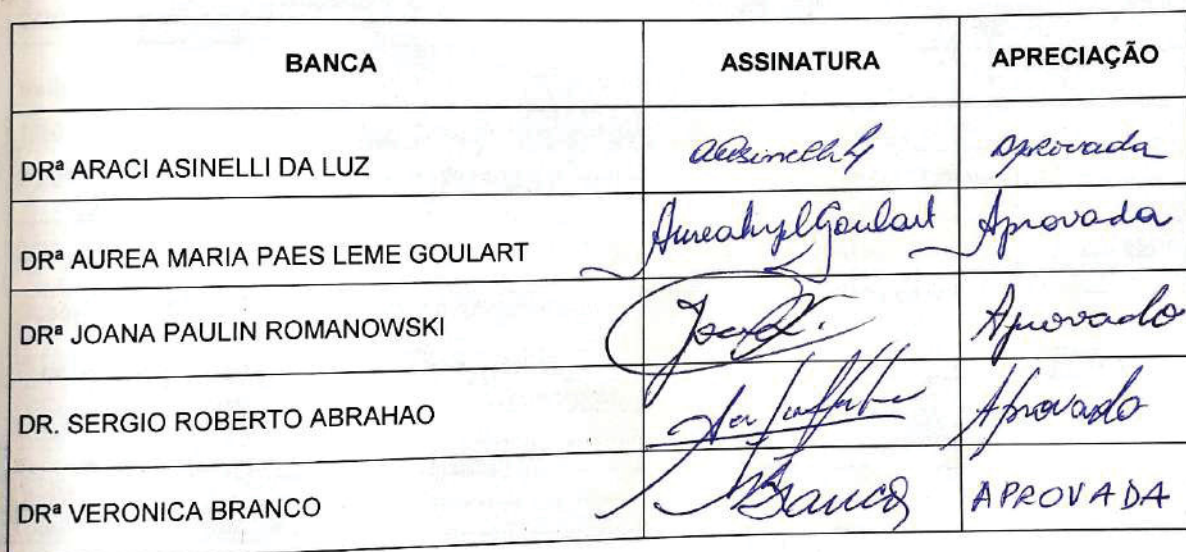 BANCA ASSINATURA APRECIAÇÃO
DRª ARACI ASINELLI DA LUZ aAsinelli Aprovada
DRª AUREA MARIA PAES LEME GOULART Aureampl Goulart Aprovada
DRª JOANA PAULIN ROMANOWSKI Aprovado
DR. SERGIO ROBERTO ABRAHAO Aprovado
DRª VERONICA BRANCO Branco APROVADA